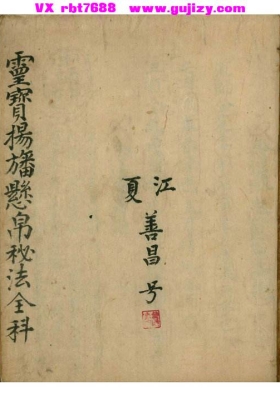 VX rbt7688 www.gujizy.com
靈寶揚旛懸帛秘法全科
江
夏
善昌号